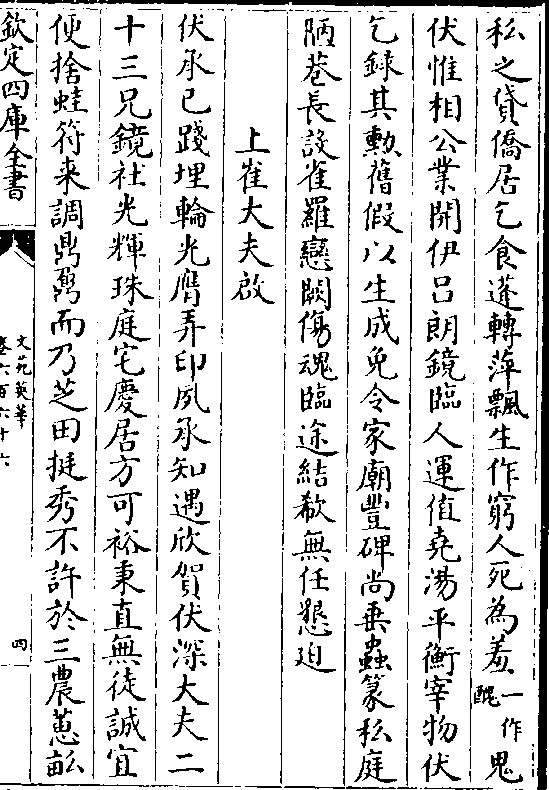 私之貸僑居乞食蓬轉萍飄生作窮人死為羞一作醜鬼
伏惟相公業開伊吕朗鏡臨人運值堯湯平衡宰物伏
乞録其勲舊假以生成免令家廟豐碑尚垂蟲篆私庭
陋巷長設雀羅戀闕傷魂臨途結欷無任懇迫
上崔大夫啟
伏承已踐埋輪光膺弄印夙承知遇欣賀伏深大夫二
十三兄鏡社光輝珠庭宅慶居方可裕秉直無徒誠宜
便捨蛙符来調鼎鼐而乃芝田挺秀不許於三農蕙畝
欽定四庫全書
文苑英華
卷六百六十六
四